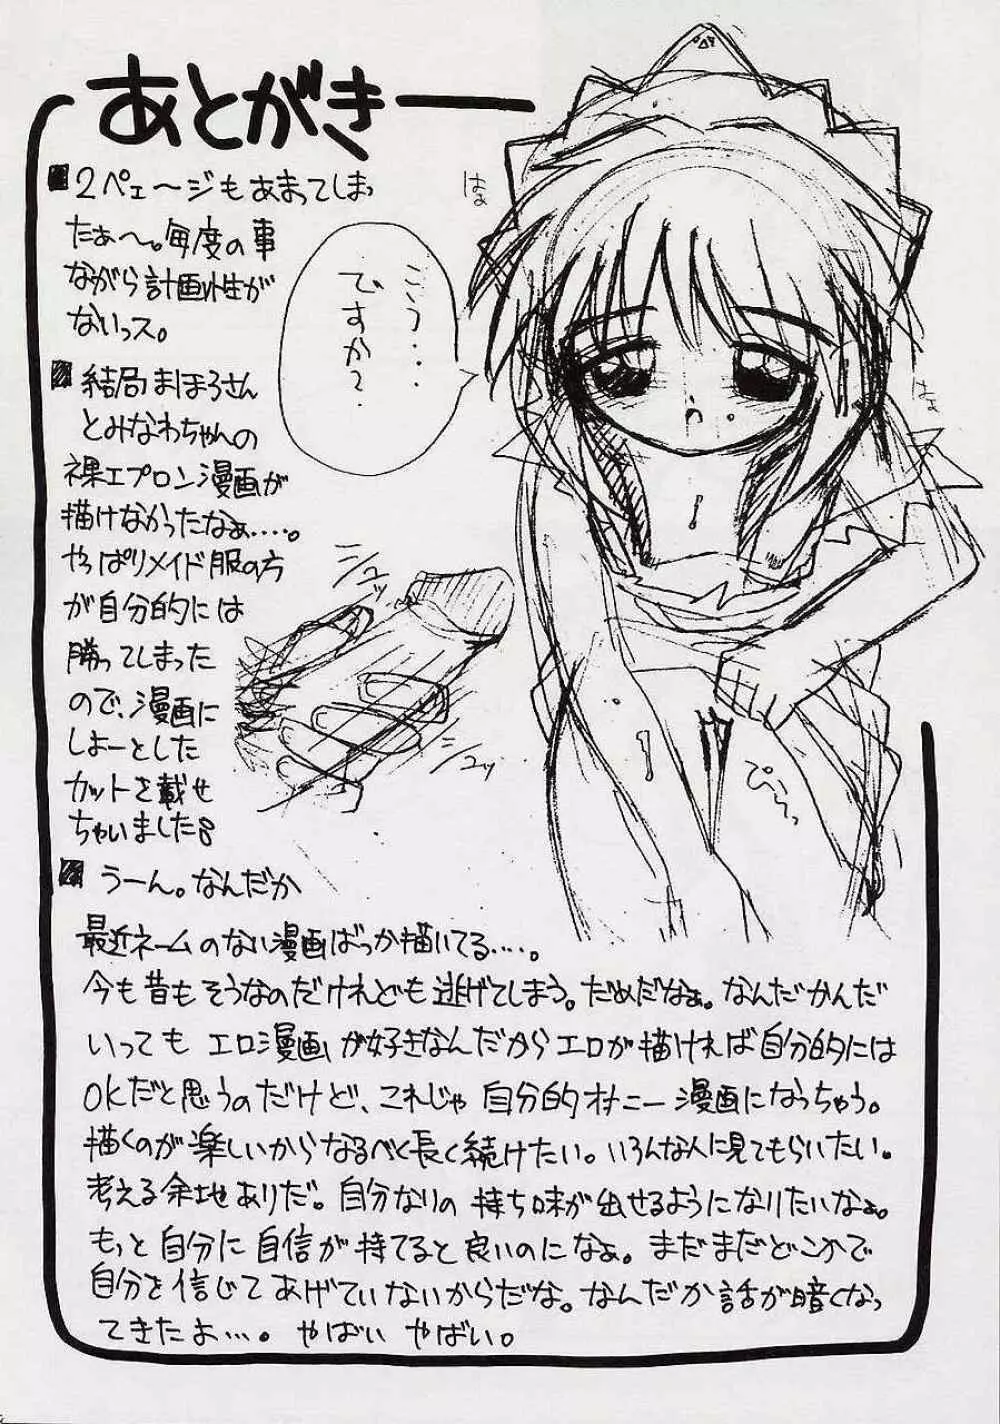 あとがきー
■2ペェ〜ジもあまってしまっ
たぁ〜。毎度の事
ながら計画性が
ないっス。
■結局まほろさん
とみなわちゃんの
裸エプロン漫画が
描けなかったなぁ……。
やっぱりメイド服の方
が自分的には
勝ってしまった
ので、漫画に
しよーとした
カットを載せ
ちゃいました。
■うーん。なんだか
最近ネームのない漫画ばっか描いてる……。
今も昔もそうなのだけれども逃げてしまう。だめだなぁ。なんだかんだ
いっても エロ漫画が好きなんだからエロが描ければ自分的には
OKだと思うのだけど、これじゃ自分的オナニー漫画になっちゃう。
描くのが楽しいからなるべく長く続けたい。いろんな人に見てもらいたい。
考える余地ありだ。自分なりの持ち味が出せるようになりたいなぁ。
もっと自分に自信が持てると良いのになぁ。まだまだどこかで
自分を信じてあげていないからだな。なんだか話が暗くなっ
てきたよ…。やばいやばい。
こう・・・
ですか？
はぁ
はぁ
シュッ
シュッ